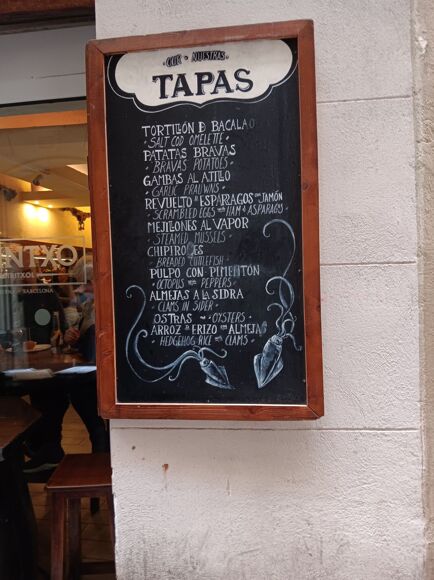 • OUR • NUESTRAS •
TAPAS
TORTILLÓN D BACALAO
• SALT COD OMELETTE •
PATATAS BRAVAS
• BRAVAS POTATOES •
GAMBAS AL AJILLO
• GARLIC PRAWNS •
REVUELTO D ESPÁRAGOS CON JAMÓN
• SCRAMBLED EGGS WITH HAM & ASPARAGUS
MEJILLONES AL VAPOR
• STEAMED MUSSELS •
CHIPIRONES
• BREADED CUTTLEFISH •
PULPO CON PIMENTÓN
• OCTOPUS WITH PEPPERS •
ALMEJAS A LA SIDRA
• CLAMS IN SIDER •
OSTRAS • OYSTERS •
ARROZ D ERIZO CON ALMEJAS
• HEDGEHOG RICE WITH CLAMS •
BARCELONA